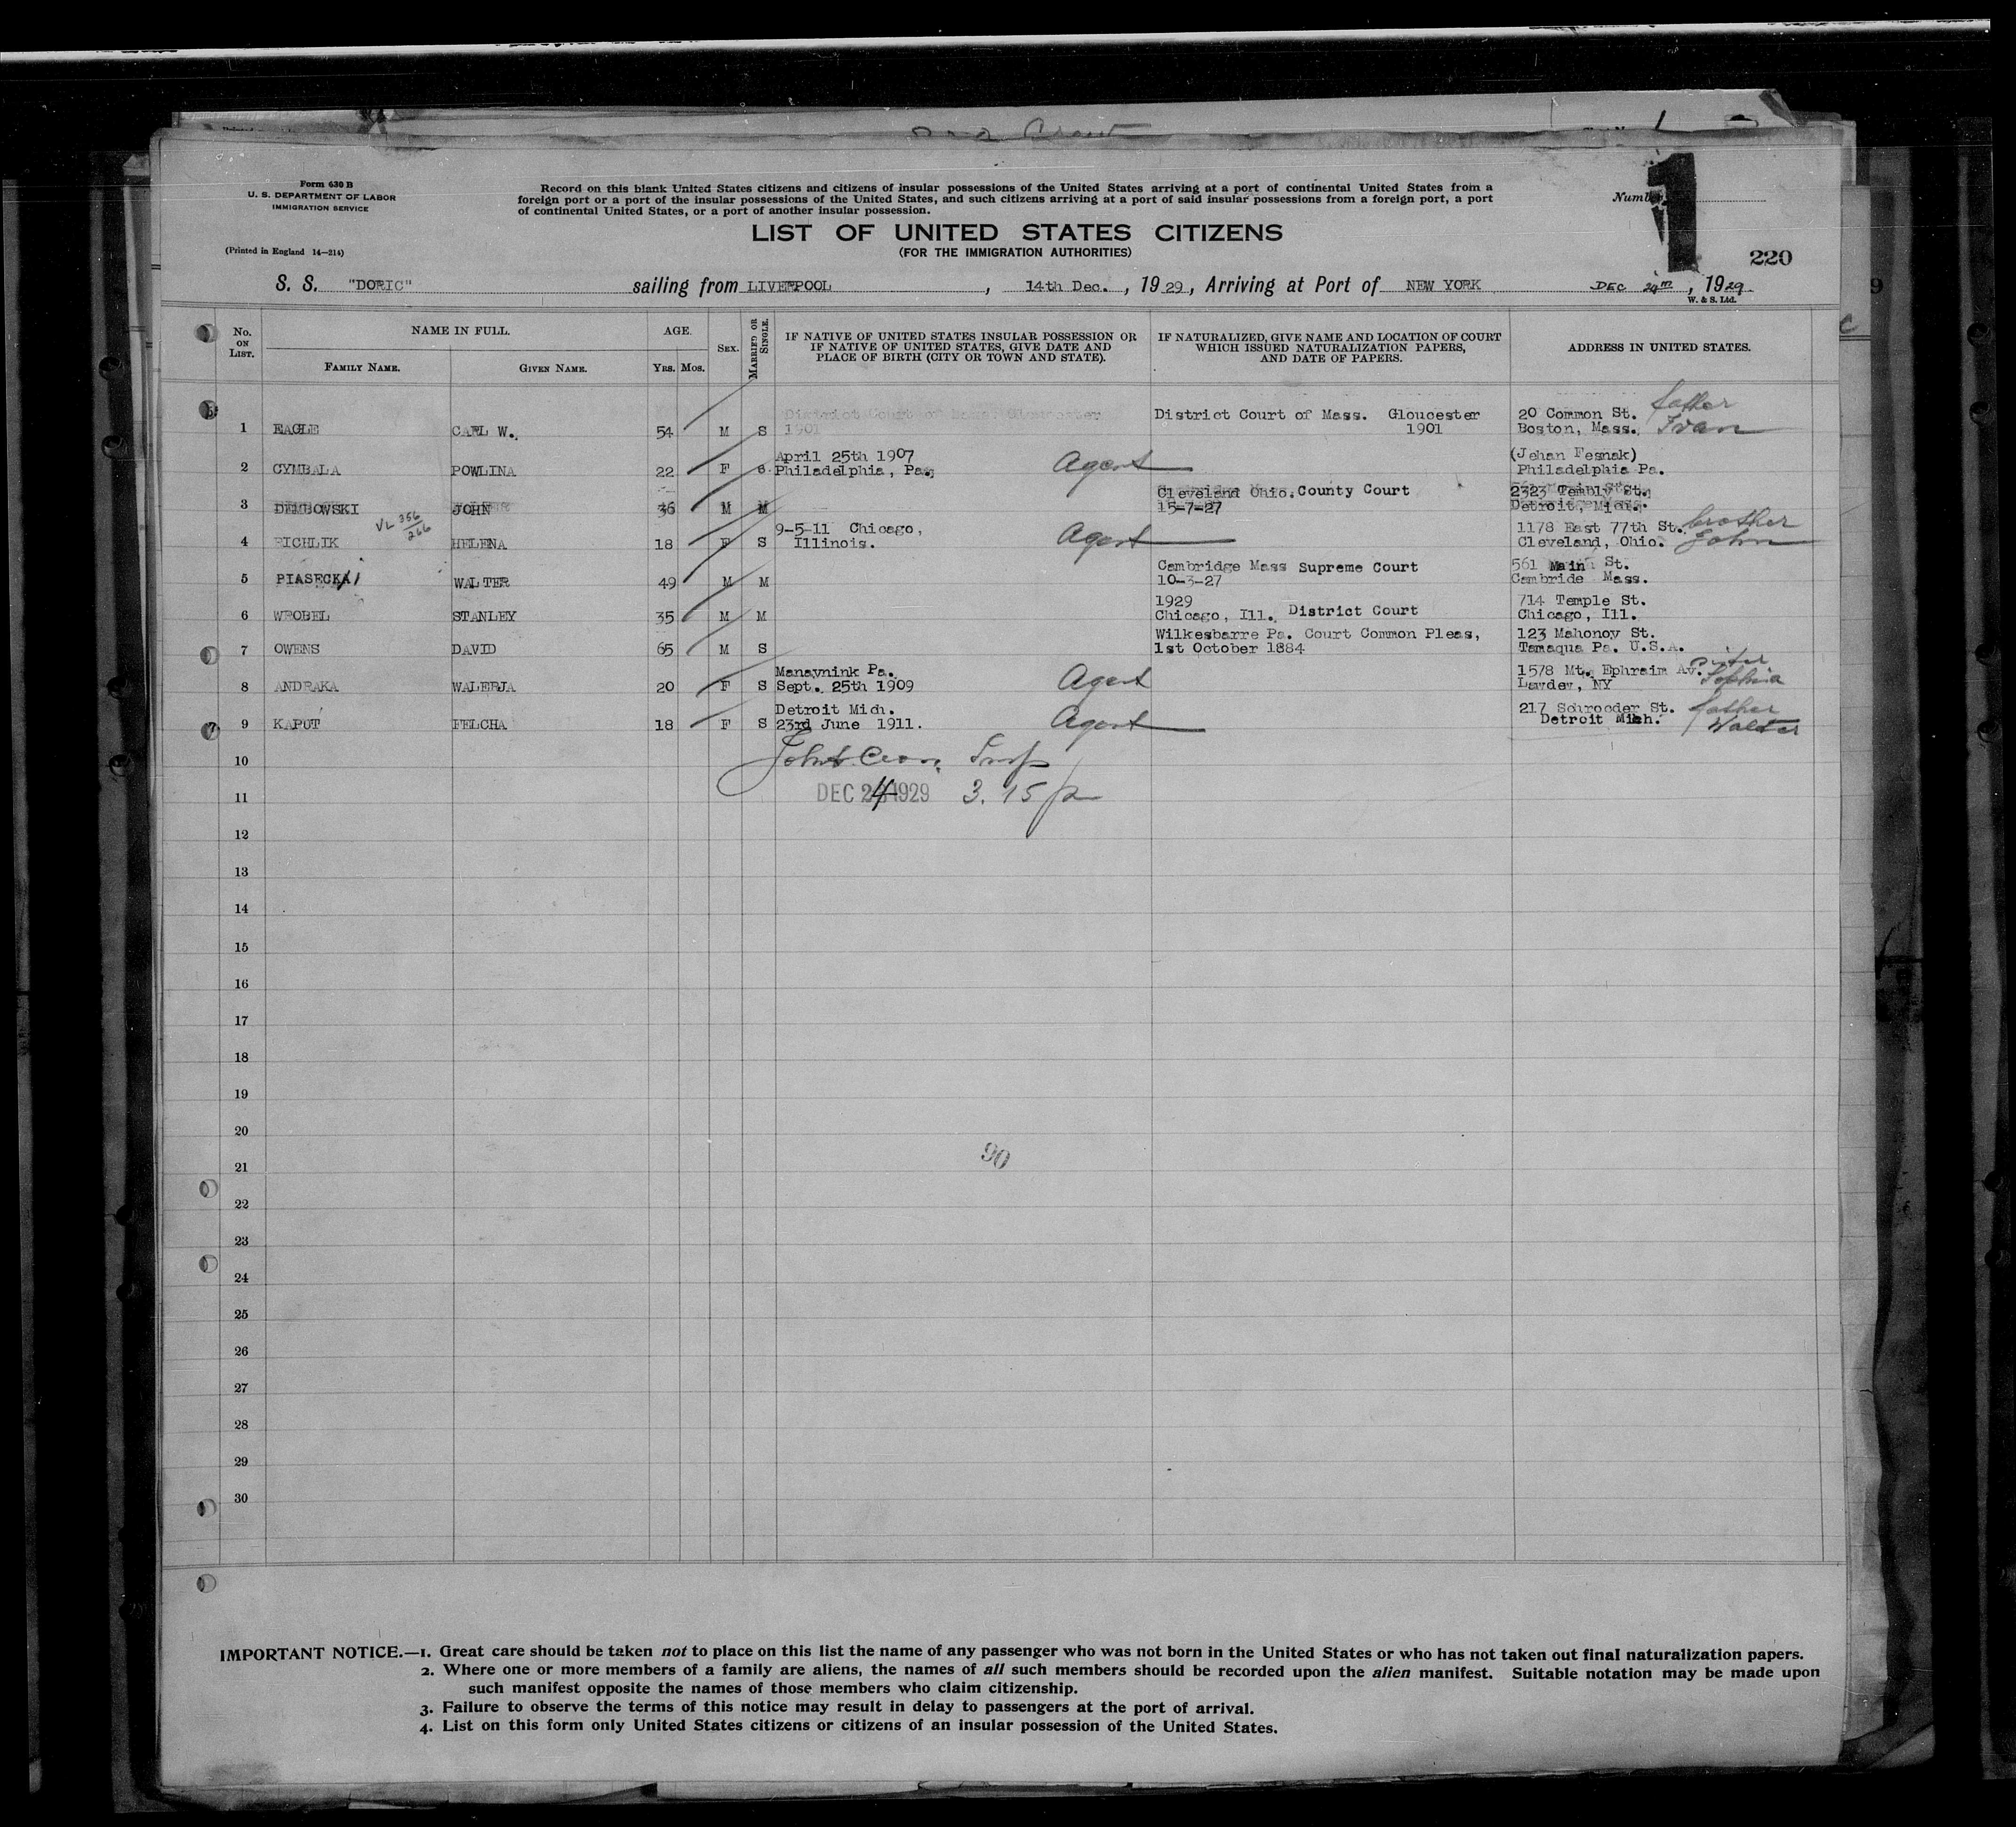 Form 630 B
U. S. DEPARTMENT OF LABOR
IMMIGRATION SERVICE
(Printed in England 14—214)
Record on this blank United States citizens and citizens of insular possessions of the United States arriving at a port of continental United States from a
foreign port or a port of the insular possessions of the United States, and such citizens arriving at a port of said insular possessions from a foreign port, a port
of continental United States, or a port of another insular possession.
Number
1
220
LIST OF UNITED STATES CITIZENS
(FOR THE IMMIGRATION AUTHORITIES)
S. S. "DORIC" sailing from LIVERPOOL, 14th Dec., 1929, Arriving at Port of NEW YORK DEC 24th, 1929
W. & S. Ltd.
No. ON LIST. NAME IN FULL. FAMILY NAME. GIVEN NAME. AGE. YRS. MOS. SEX. MARRIED OR SINGLE. IF NATIVE OF UNITED STATES INSULAR POSSESSION OR IF NATIVE OF UNITED STATES, GIVE DATE AND PLACE OF BIRTH (CITY OR TOWN AND STATE). IF NATURALIZED, GIVE NAME AND LOCATION OF COURT WHICH ISSUED NATURALIZATION PAPERS, AND DATE OF PAPERS. ADDRESS IN UNITED STATES.
District Court of Mass. Gloucester 20 Common St. father
1 EAGLE CARL W. 54 M S 1901 1901 Boston, Mass. Ivan
April 25th 1907 (Jehan Fesnak)
2 CYMBALA POWLINA 22 F S Philadelphia, Pa. Agent Philadelphia Pa.
Cleveland Ohio. County Court 2323 Tembly St.
3 DEMBOWSKI JOHN 36 M M 15-7-27 Detroit, Mich.
VL 356/266
9-5-11 Chicago, 1178 East 77th St. brother
4 RICHLIK HELENA 18 F S Illinois. Agent Cleveland, Ohio. John
Cambridge Mass Supreme Court 561 Main St.
5 PIASECKI WALTER 49 M M 10-3-27 Cambride Mass.
1929 714 Temple St.
6 WROBEL STANLEY 35 M M Chicago, Ill. District Court Chicago, Ill.
Wilkesbarre Pa. Court Common Pleas, 123 Mahonoy St.
7 OWENS DAVID 65 M S 1st October 1884 Tamaqua Pa. U.S.A.
Manaynink Pa. 1578 Mt. Ephraim Av. sister
8 ANDRAKA WALERJA 20 F S Sept. 25th 1909 Agent Lawdew, NY Sophia
Detroit Mich. 217 Schrooder St. father
9 KAPUT FELCHA 18 F S 23rd June 1911. Agent Detroit Mich. Walter
10 Insp
11 DEC 24 1929 3.15 p
12
13
14
15
16
17
18
19
20
90
21
22
23
24
25
26
27
28
29
30
IMPORTANT NOTICE.—1. Great care should be taken not to place on this list the name of any passenger who was not born in the United States or who has not taken out final naturalization papers.
2. Where one or more members of a family are aliens, the names of all such members should be recorded upon the alien manifest. Suitable notation may be made upon
such manifest opposite the names of those members who claim citizenship.
3. Failure to observe the terms of this notice may result in delay to passengers at the port of arrival.
4. List on this form only United States citizens or citizens of an insular possession of the United States.